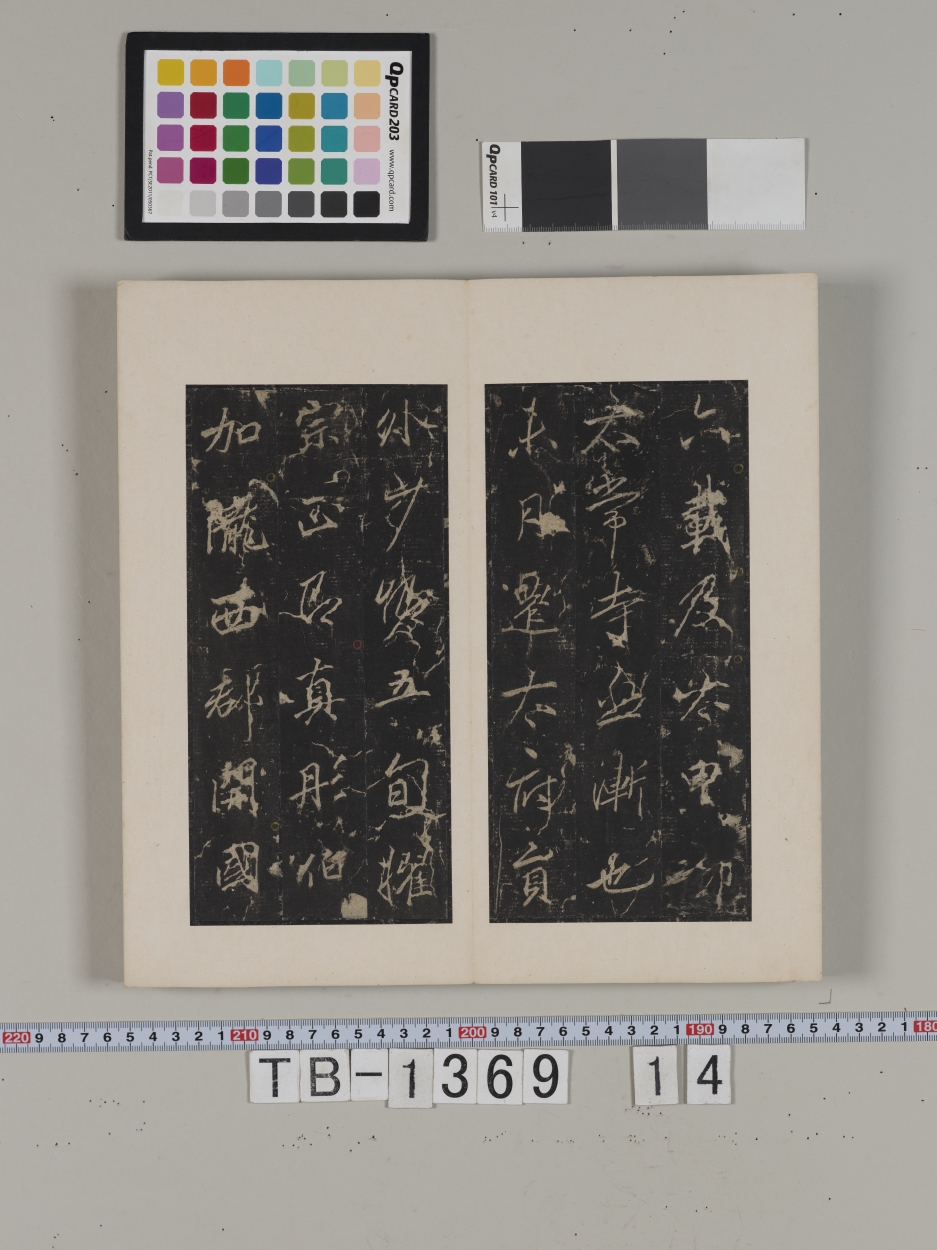 六載及
太常寺丞漸也
未月遷太府員
外少卿五旬擢
宗正卿真彤伯
加隴西郡開國
QPCARD 203 www.qpcard.com
QPCARD 101 v4
220 9 8 7 6 5 4 3 2 1 210 9 8 7 6 5 4 3 2 1 200 9 8 7 6 5 4 3 2 1 190 9 8 7 6 5 4 3 2 1 180
TB-1369 14